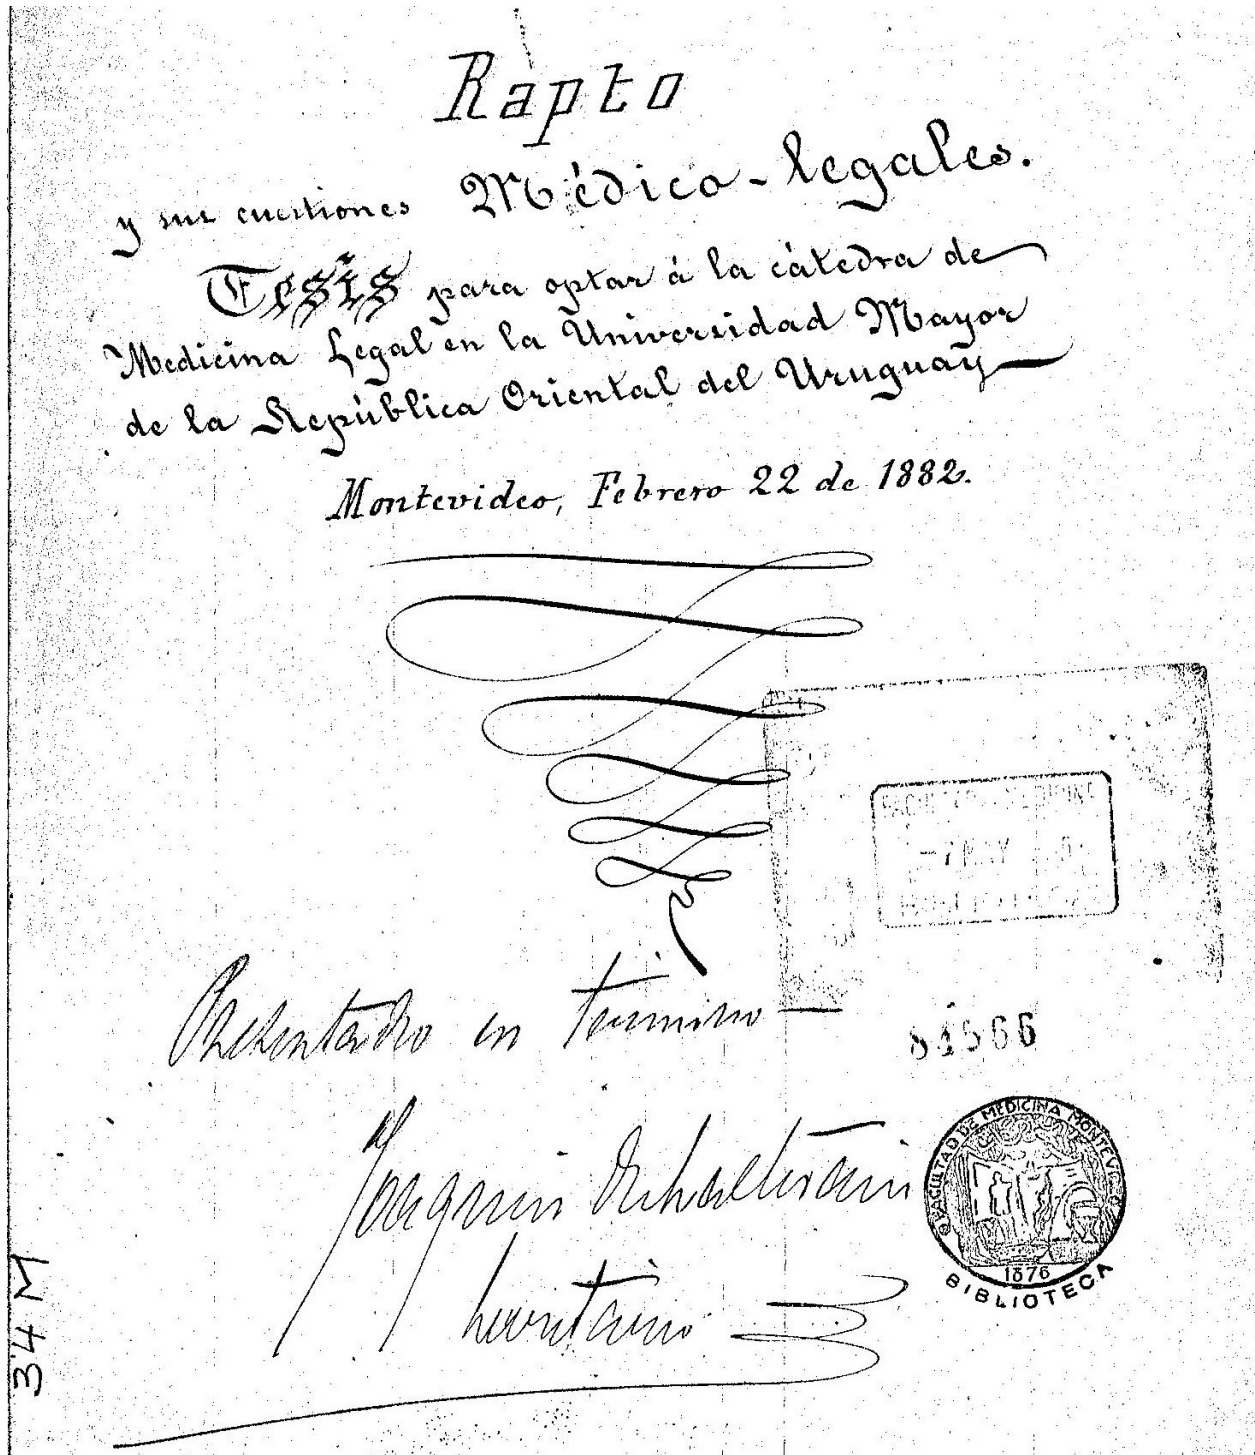 Rapto
y sus cuestiones Médico-legales.
Tesis para optar á la cátedra de
Medicina Legal en la Universidad Mayor
de la República Oriental del Uruguay
Montevideo, Febrero 22 de 1882.
FACULTAD DE MEDICINA
-7 MAY
Presentado en termino
84566
Joaquin de Salterain
Secretario
FACULTAD DE MEDICINA MONTEVIDEO
1876
BIBLIOTECA
34 M